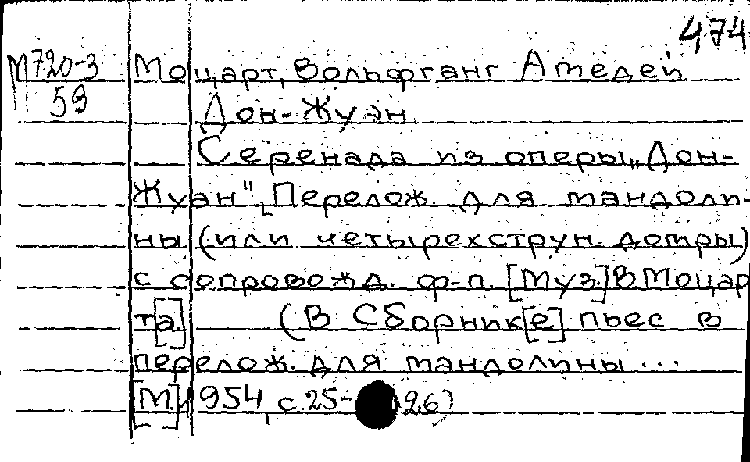 474
М720-3 Моцарт, Вольфганг Амедей
59 Дон-Жуан
Серенада из оперы „Дон-
Жуан". Перелож. для мандоли-
ны (или четырехструн. домры)
с сопровожд. ф-п. [Муз] В Моцар
та] (В Сборник[е] пьес в
перелож. для мандолины ...
[М] 1954, с. 25-26)